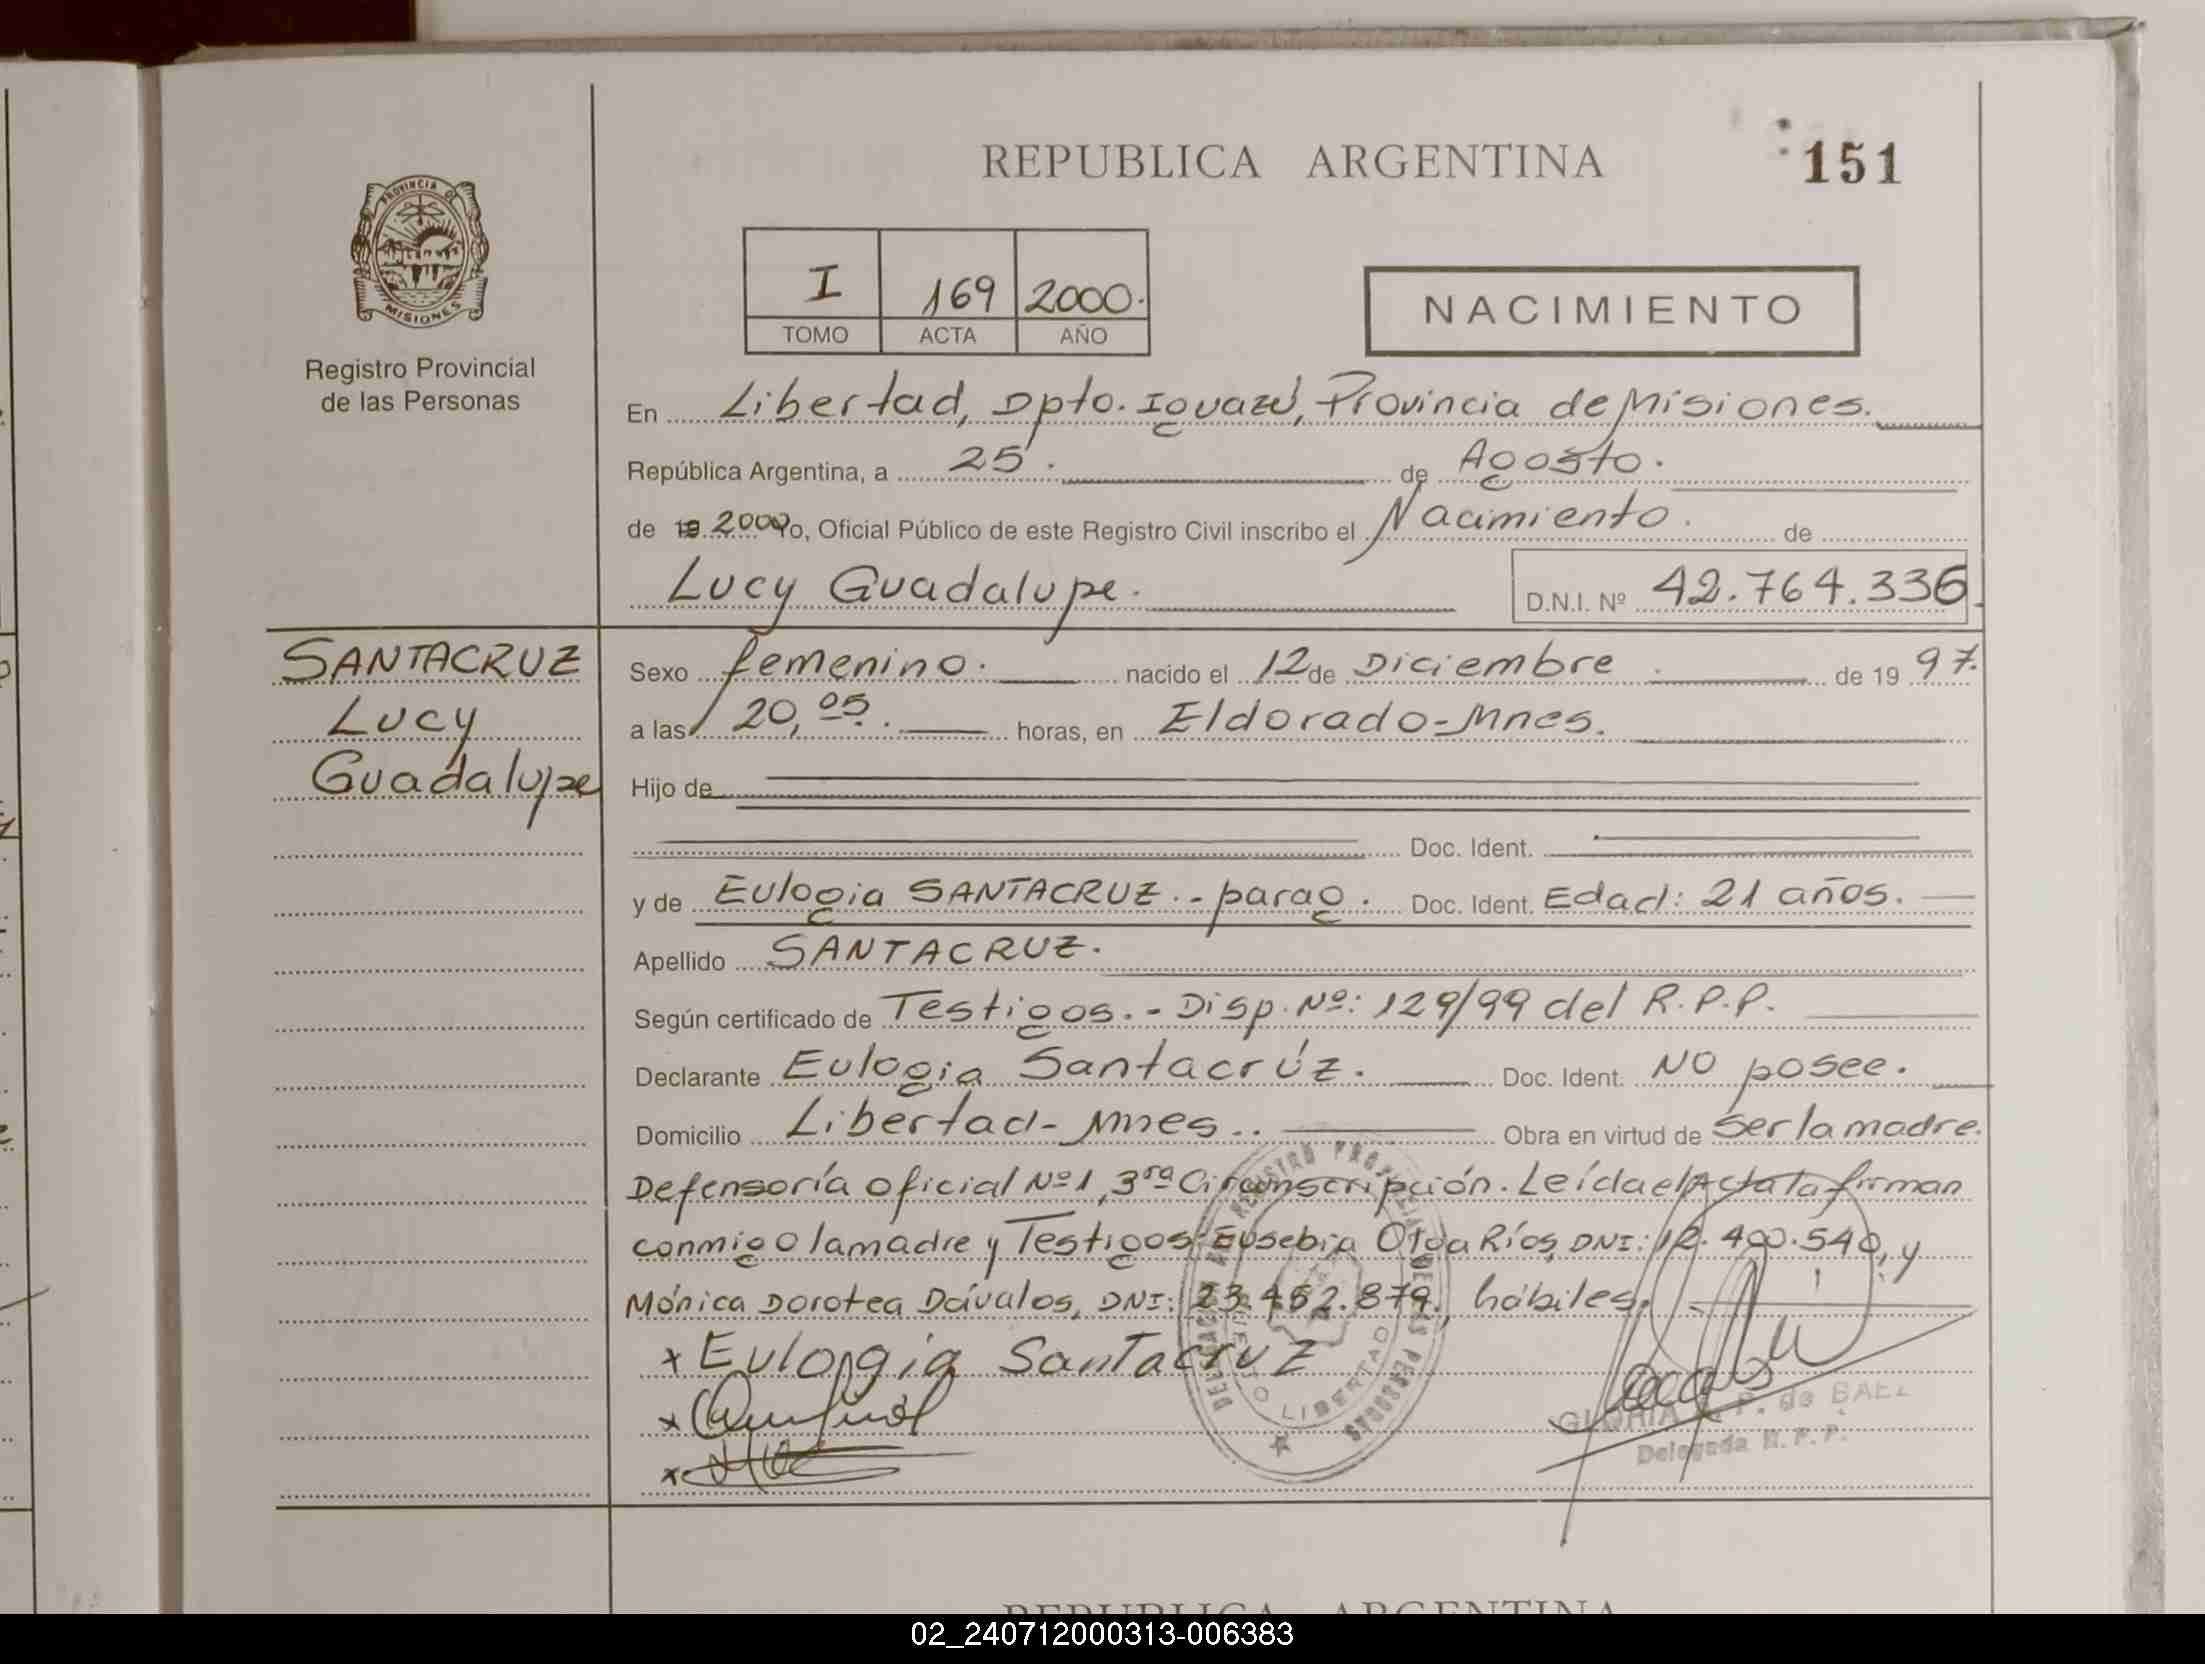 REPUBLICA ARGENTINA
151
PROVINCIA DE
MISIONES
Registro Provincial
de las Personas
I 169 2000.
TOMO ACTA AÑO
NACIMIENTO
En Libertad, Dpto. Iguazú, Provincia de Misiones.
República Argentina, a 25. de Agosto.
de 19 2000 Yo, Oficial Público de este Registro Civil inscribo el Nacimiento. de
Lucy Guadalupe. D.N.I. Nº 42.764.336.
SANTACRUZ
Lucy
Guadalupe
Sexo femenino. nacido el 12 de Diciembre. de 19 97.
a las 20,05. horas, en Eldorado-Mnes.
Hijo de
Doc. Ident.
y de Eulogia SANTACRUZ.- parag. Doc. Ident. Edad: 21 años.
Apellido SANTACRUZ.
Según certificado de Testigos.- Disp. Nº: 129/99 del R.P.P.
Declarante Eulogia Santacrúz. Doc. Ident. NO posee.
Domicilio Libertad- Mnes.. Obra en virtud de Ser la madre.
Defensoría oficial Nº1, 3ra Circunscripción. Leída el Acta la firman
conmigo la madre y Testigos: Eusebia Olga Ríos, DNI: 12.400.540, y
Mónica Dorotea Dávalos, DNI: 23.462.879, hábiles.
x Eulogia Santacruz
x
x
LIBERTAD
GLORIA P. de BAEZ
Delegada R.P.P.
REPUBLICA ARGENTINA
02_240712000313-006383